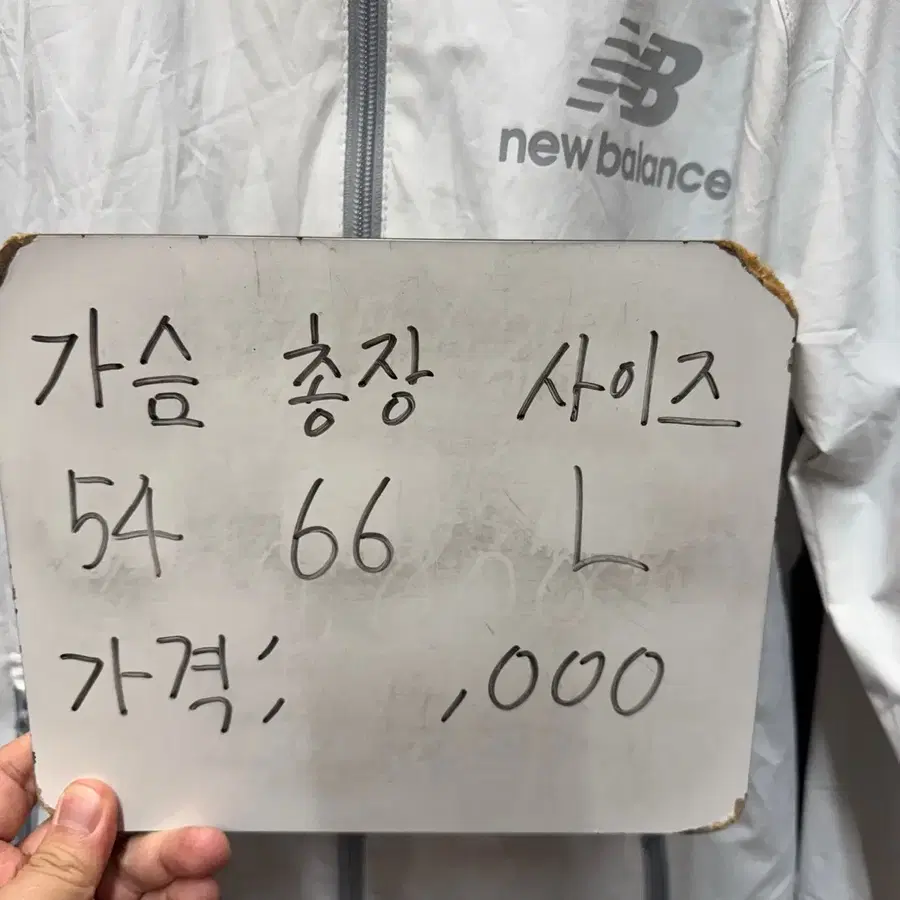 NB
new balance
가슴 총장 사이즈
54 66 L
가격; ,000